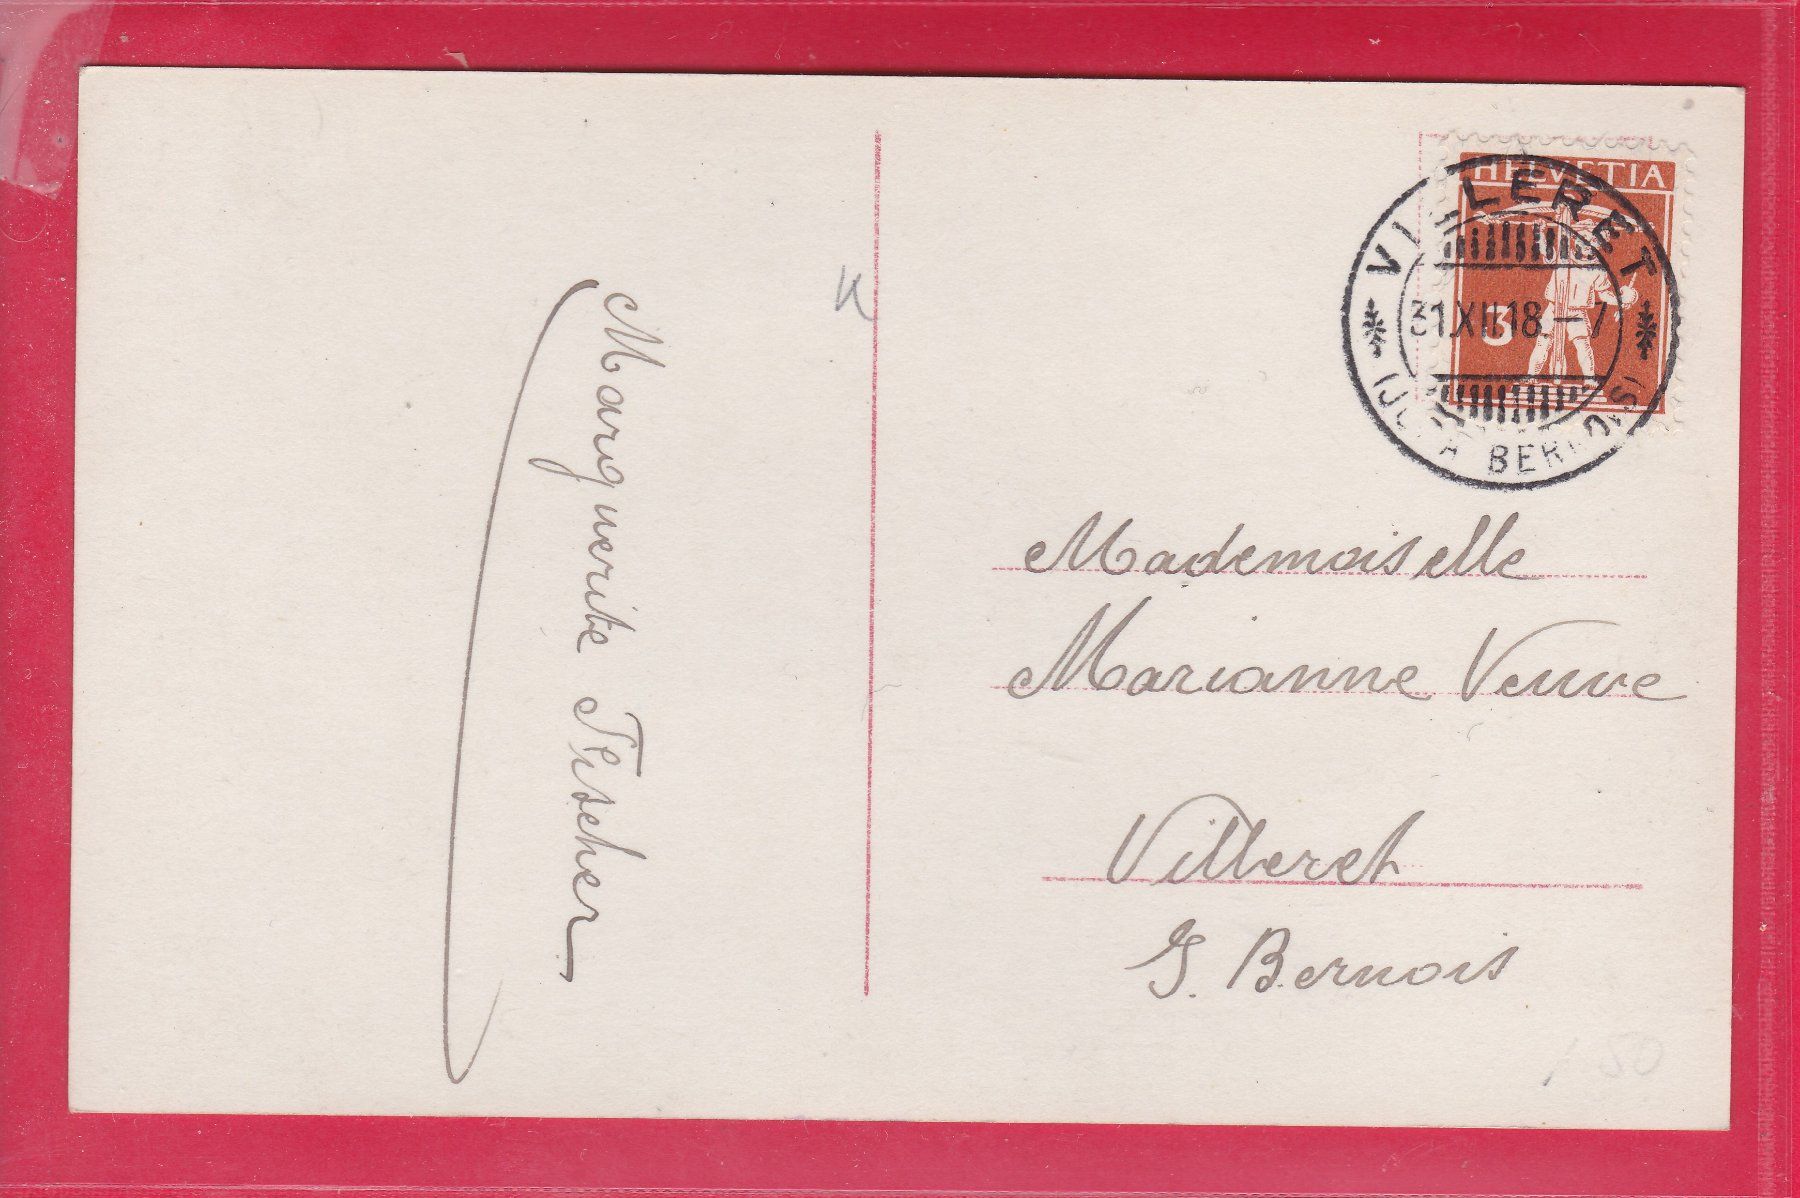 Marguerite Fischer
HELVETIA
3
VILLERET
31.XII.18.–7
(JURA BERNOIS)
Mademoiselle
Marianne Veuve
Villeret
J. Bernois
150